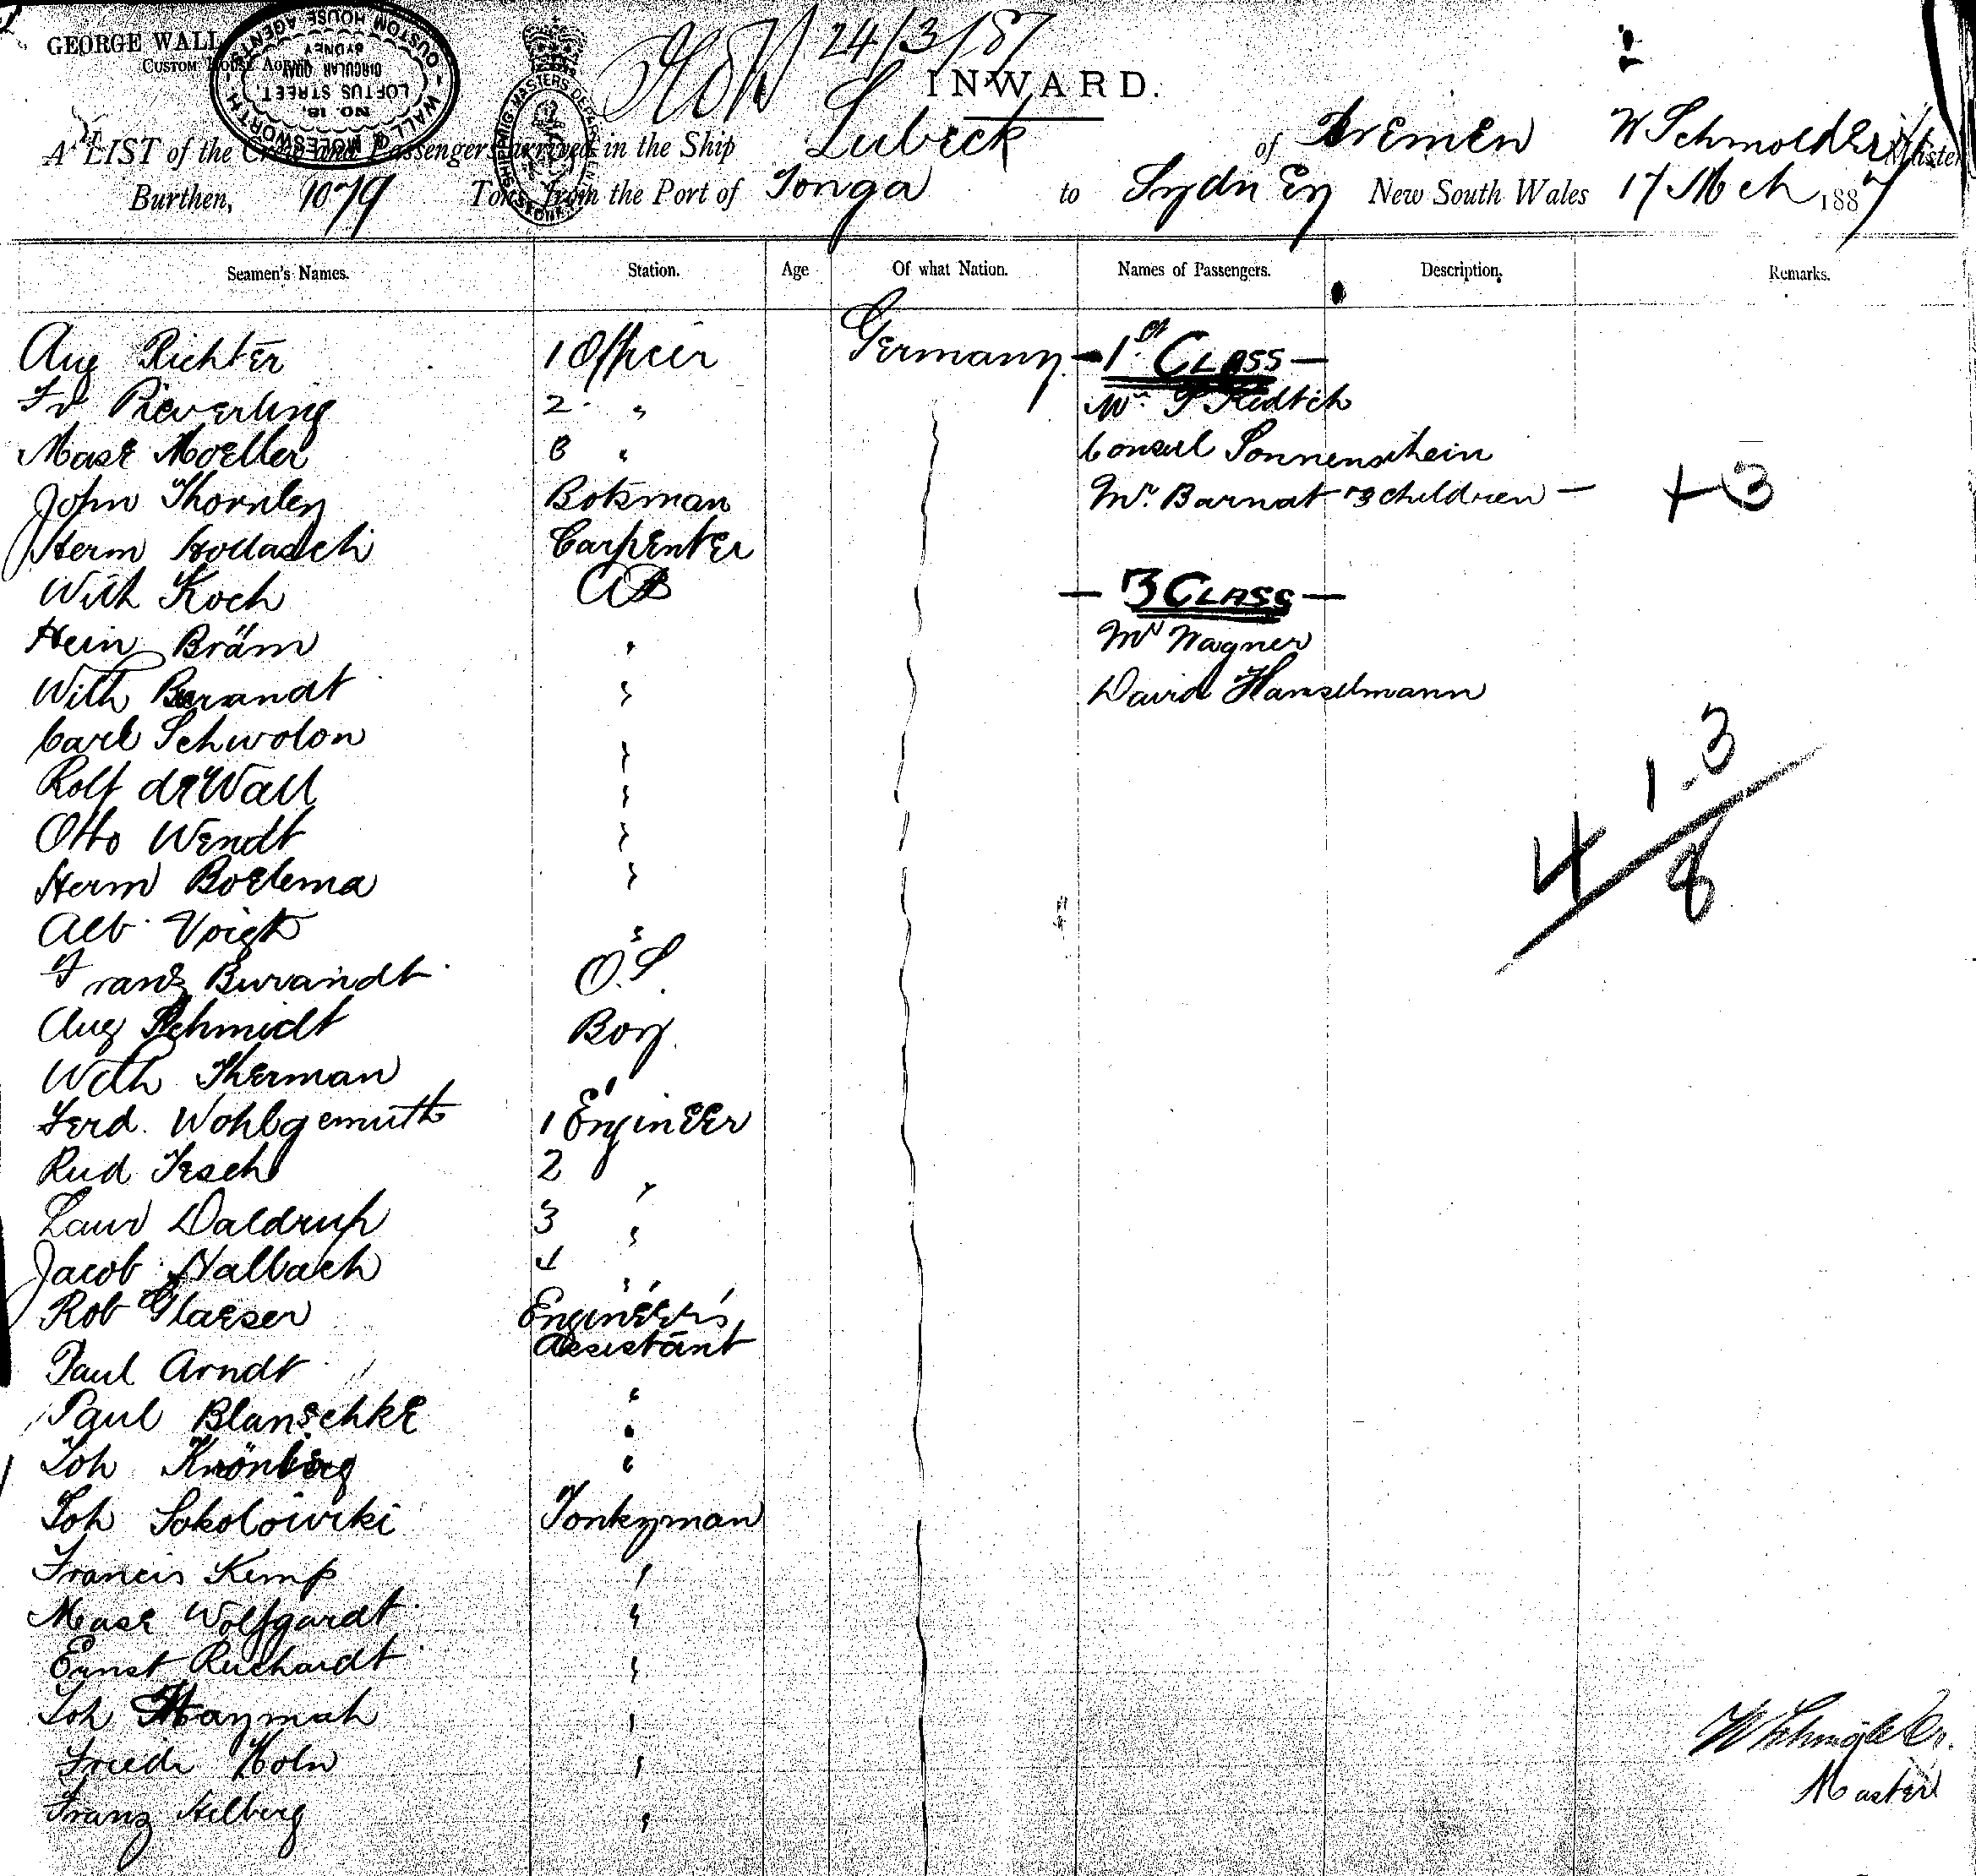 GEORGE WALL
CUSTOM HOUSE AGENT
WALL & MOLESWORTH
NO. 18,
LOFTUS STREET
CIRCULAR QUAY
SYDNEY
CUSTOM HOUSE AGENTS
SHIPPING MASTERS DEPARTMENT SYDNEY
24/3/87
INWARD.
A LIST of the Crew and Passengers arrived in the Ship Lubeck of Bremen W Schmolder Master
Burthen, 1079 Tons from the Port of Tonga to Sydney New South Wales 17 Mch 1887
Seamen's Names. Station. Age Of what Nation. Names of Passengers. Description. Remarks.
Aug Richter 1 Officer Germany - 1st CLASS -
Fr Pieverling 2 " Mr
Max Moeller 3 " Consul Sonnenschein
John Thornley Botsman Mr. Barnat 3 children - + 3
Herm Hollasch Carpenter
Wilh Koch AB - 3 CLASS -
Hein Bräm " Mr Wagner
Wilh Burandt " David Hanselmann
Carl Schwolon "
Rolf de Wall " 1 3
Otto Wendt " 4
Herm Boelema " 8
Alb Voigt "
Franz Burandt O.S.
Aug Schmidt Boy
Wilh Therman "
Ferd. Wohlgemuth 1 Engineer
Rud Tesch 2 "
Laur Daldrup 3 "
Jacob Nalbach 4 "
Rob Glaeser Engineer's Assistant
Paul Arndt "
Paul Blanschke "
Joh Krönberg "
Joh Sokolowski Donkyman
Francis Kemp "
Max Wolfgardt "
Ernst Reichardt "
Joh Haymah "
Friedr Holn "
Franz Helberg "
W Schmölder.
Master